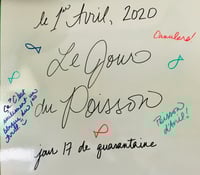 le 1er Avril, 2020
Canulars!
Le Jour
du Poisson
Poisson
d'Avril!
jour 17 de quarantaine